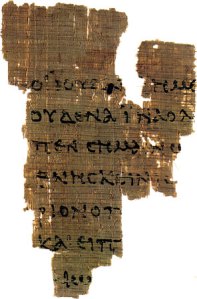 ΟΙ ΙΟΥΔΑΙ ΗΜΕ
ΟΥΔΕΝΑ ΙΝΑ Ο Λ
ΠΕΝ CΗΜΑΙΝΩ
ΘΝΗCΚΕΙΝ Ε
ΡΙΟΝ Ο Π
ΚΑΙ ΕΙΠ